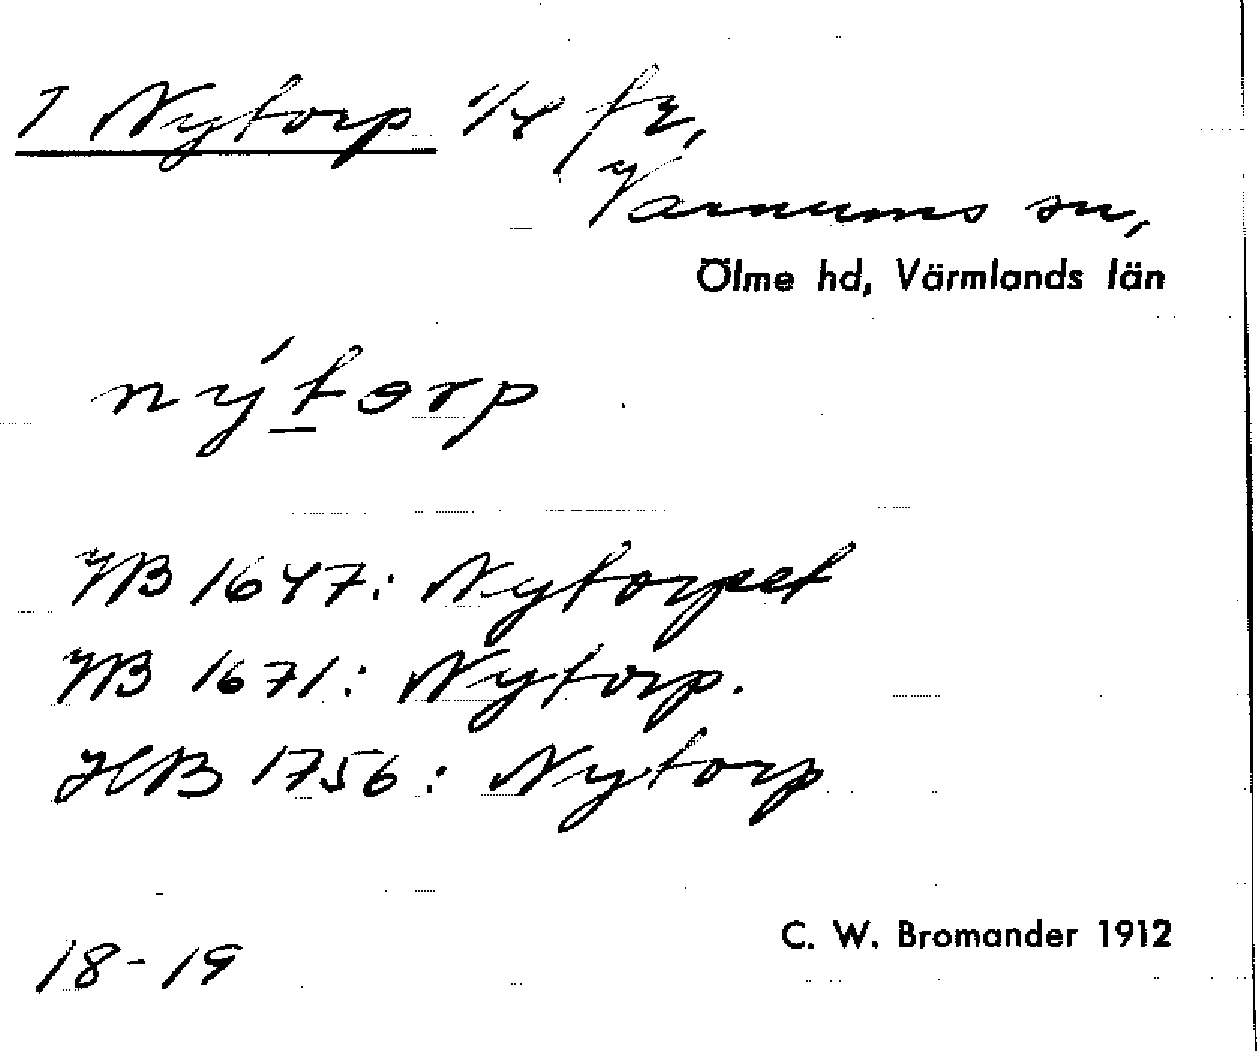 1 Nytorp 1/4 fr,
Varnums sn,
Ölme hd, Värmlands län
ný́torp
JB 1647: Nytorpet
JB 1671: Nytorp.
HB 1756: Nytorp
C. W. Bromander 1912
18-19